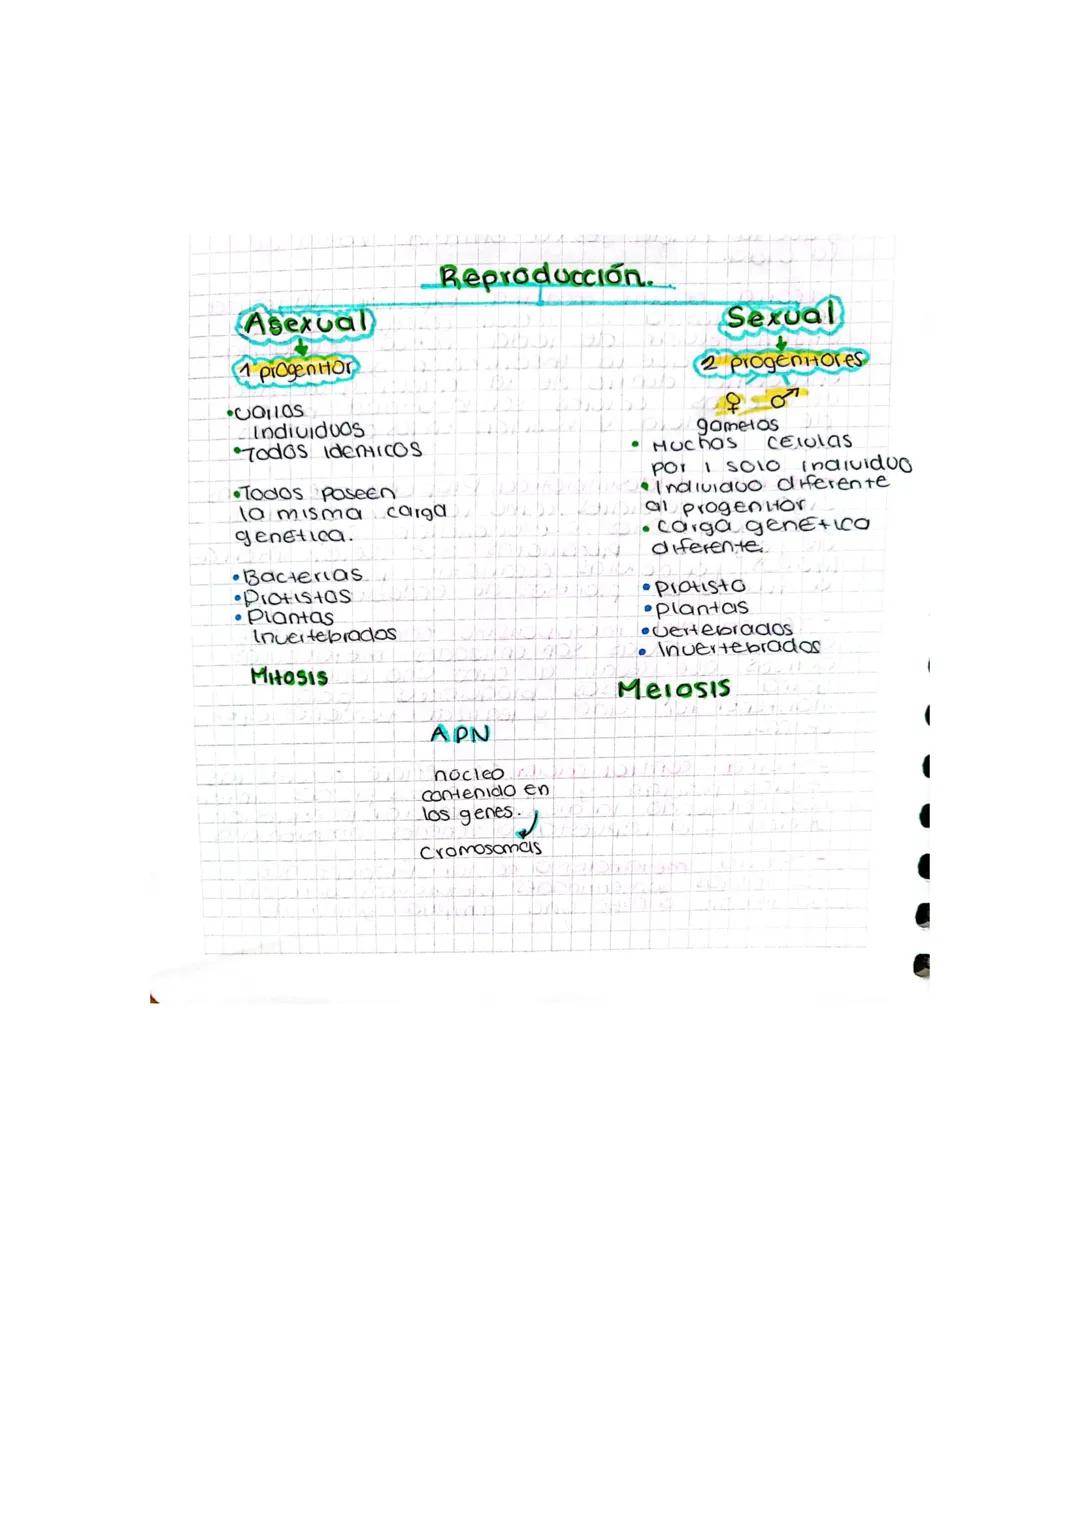 Reproducción.
Asexual
1 progenitor
•varios
individuos
•Todos identicos
•Todos poseen
la misma carga
genetica.
•Bacterias
•Protistas
•Plantas
Invertebrados
Mitosis
Sexual
2 progenitores
♀ ♂
gametos
• Muchas celulas
por 1 solo individuo
•Individuo diferente
al progenitor
•carga genetica
diferente.
•Protista
•plantas
•vertebrados
•Invertebrados
Meiosis
ADN
nucleo
contenido en
los genes.
Cromosomas